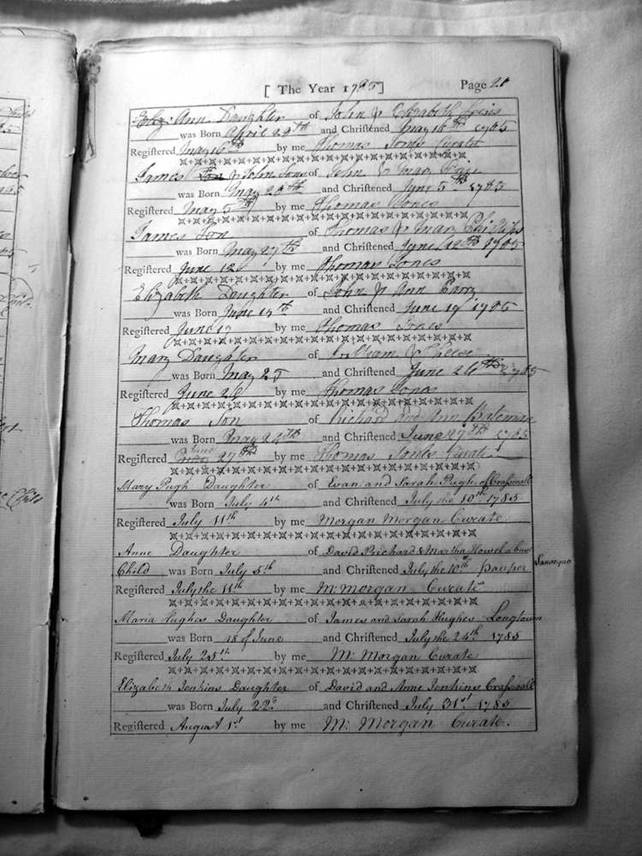 [ The Year 1785 ] Page 21
Ann Daughter of John & Elizabeth
was Born April 29th and Christened May 16th 1785
Registered May 16th by me Thomas Jones Curate
James of John & Mary
was Born May and Christened June 5th 1785
Registered May 5th by me Thomas Jones
James Son of Thomas & Mary
was Born May 27th and Christened June 12th 1785
Registered June 12 by me Thomas Jones
Elizabeth Daughter of John & Ann Parry
was Born June 14th and Christened June 19 1785
Registered June 19 by me Thomas Jones
Mary Daughter of William
was Born May 25 and Christened June 26th 1785
Registered June 26 by me Thomas Jones
Thomas Son of Richard and Ann Bateman
was Born May 24th and Christened June 27th 1785
Registered June 27th by me Thomas Jones Curate
Mary Pugh Daughter of Evan and Sarah Pugh of Craswall
was Born July 4th and Christened July the 10th 1785
Registered July 11th by me Morgan Morgan Curate
Anne Daughter of David Prichard & Martha Howel a base
Child was Born July 5th and Christened July the 10th Pauper
Registered July the 11th by me M: Morgan Curate
Maria Hughes Daughter of James and Sarah Hughes Longtown
was Born 18 of June and Christened July the 24th 1785
Registered July 25th by me M: Morgan Curate
Elizabeth Jenkins Daughter of David and Anne Jenkins Craswall
was Born July 22d and Christened July 31st 1785
Registered August 1st by me M: Morgan Curate.